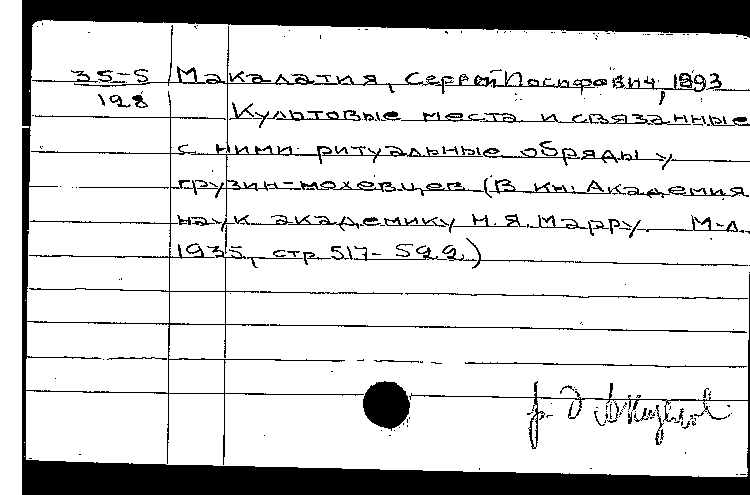 35-5 Макалатия, Сергей Иосифович, 1893
128 Культовые места и связанные
с ними ритуальные обряды у
грузин-мохевцев (В кн: Академия
наук академику Н.Я.Марру. М-Л.
1935, стр. 517-522.)
р. д